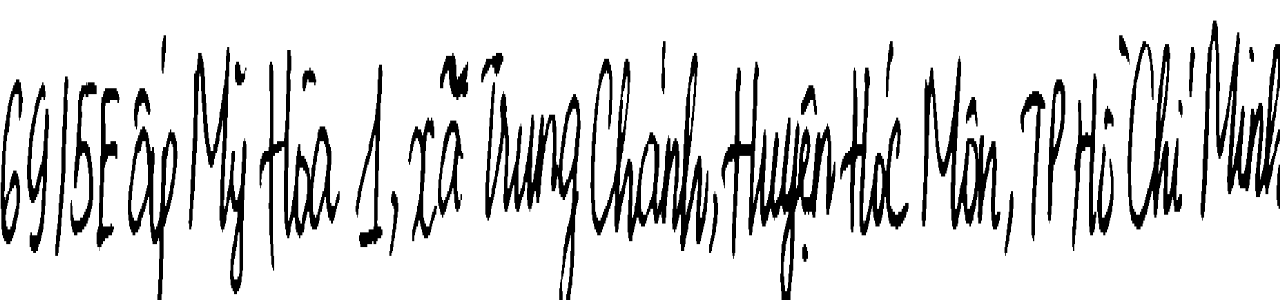 69/5E ấp Mỹ Hòa 1, xã Trung Chánh, Huyện Hóc Môn, TP Hồ Chí Minh